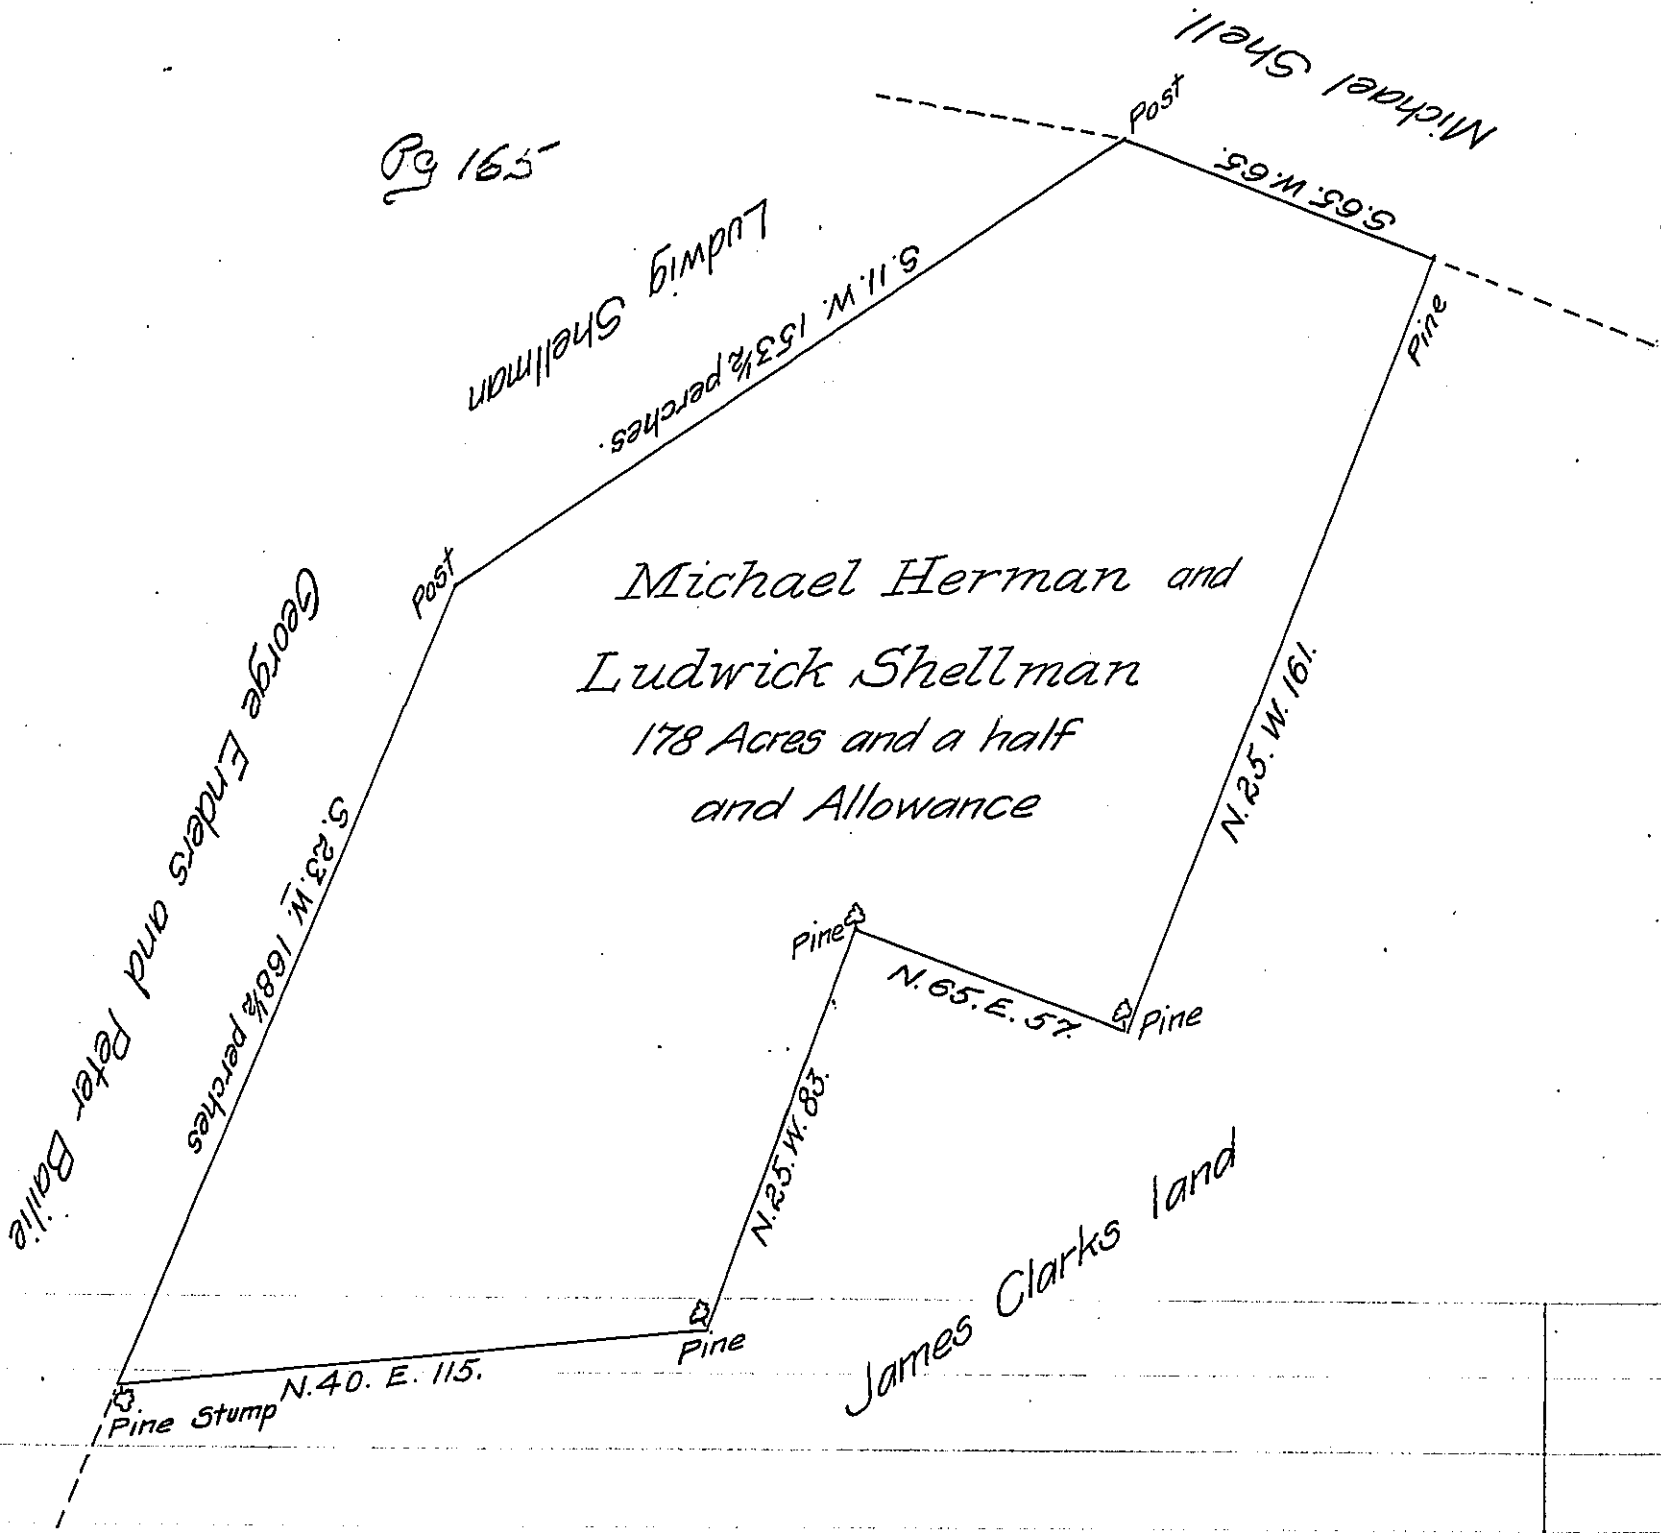 Michael Shell.
Post
Pg 165
S.65.W.65.
Ludwig Shellman
S.11.W. 153½ perches.
Pine
Post
Michael Herman and
Ludwick Shellman
178 Acres and a half
and Allowance
George Enders and Peter Bailie
S.23.W. 168½ perches
N.25.W.161.
Pine
N.65.E.57.
Pine
N.25.W.83.
James Clarks land
Pine
N.40.E.115.
Pine Stump